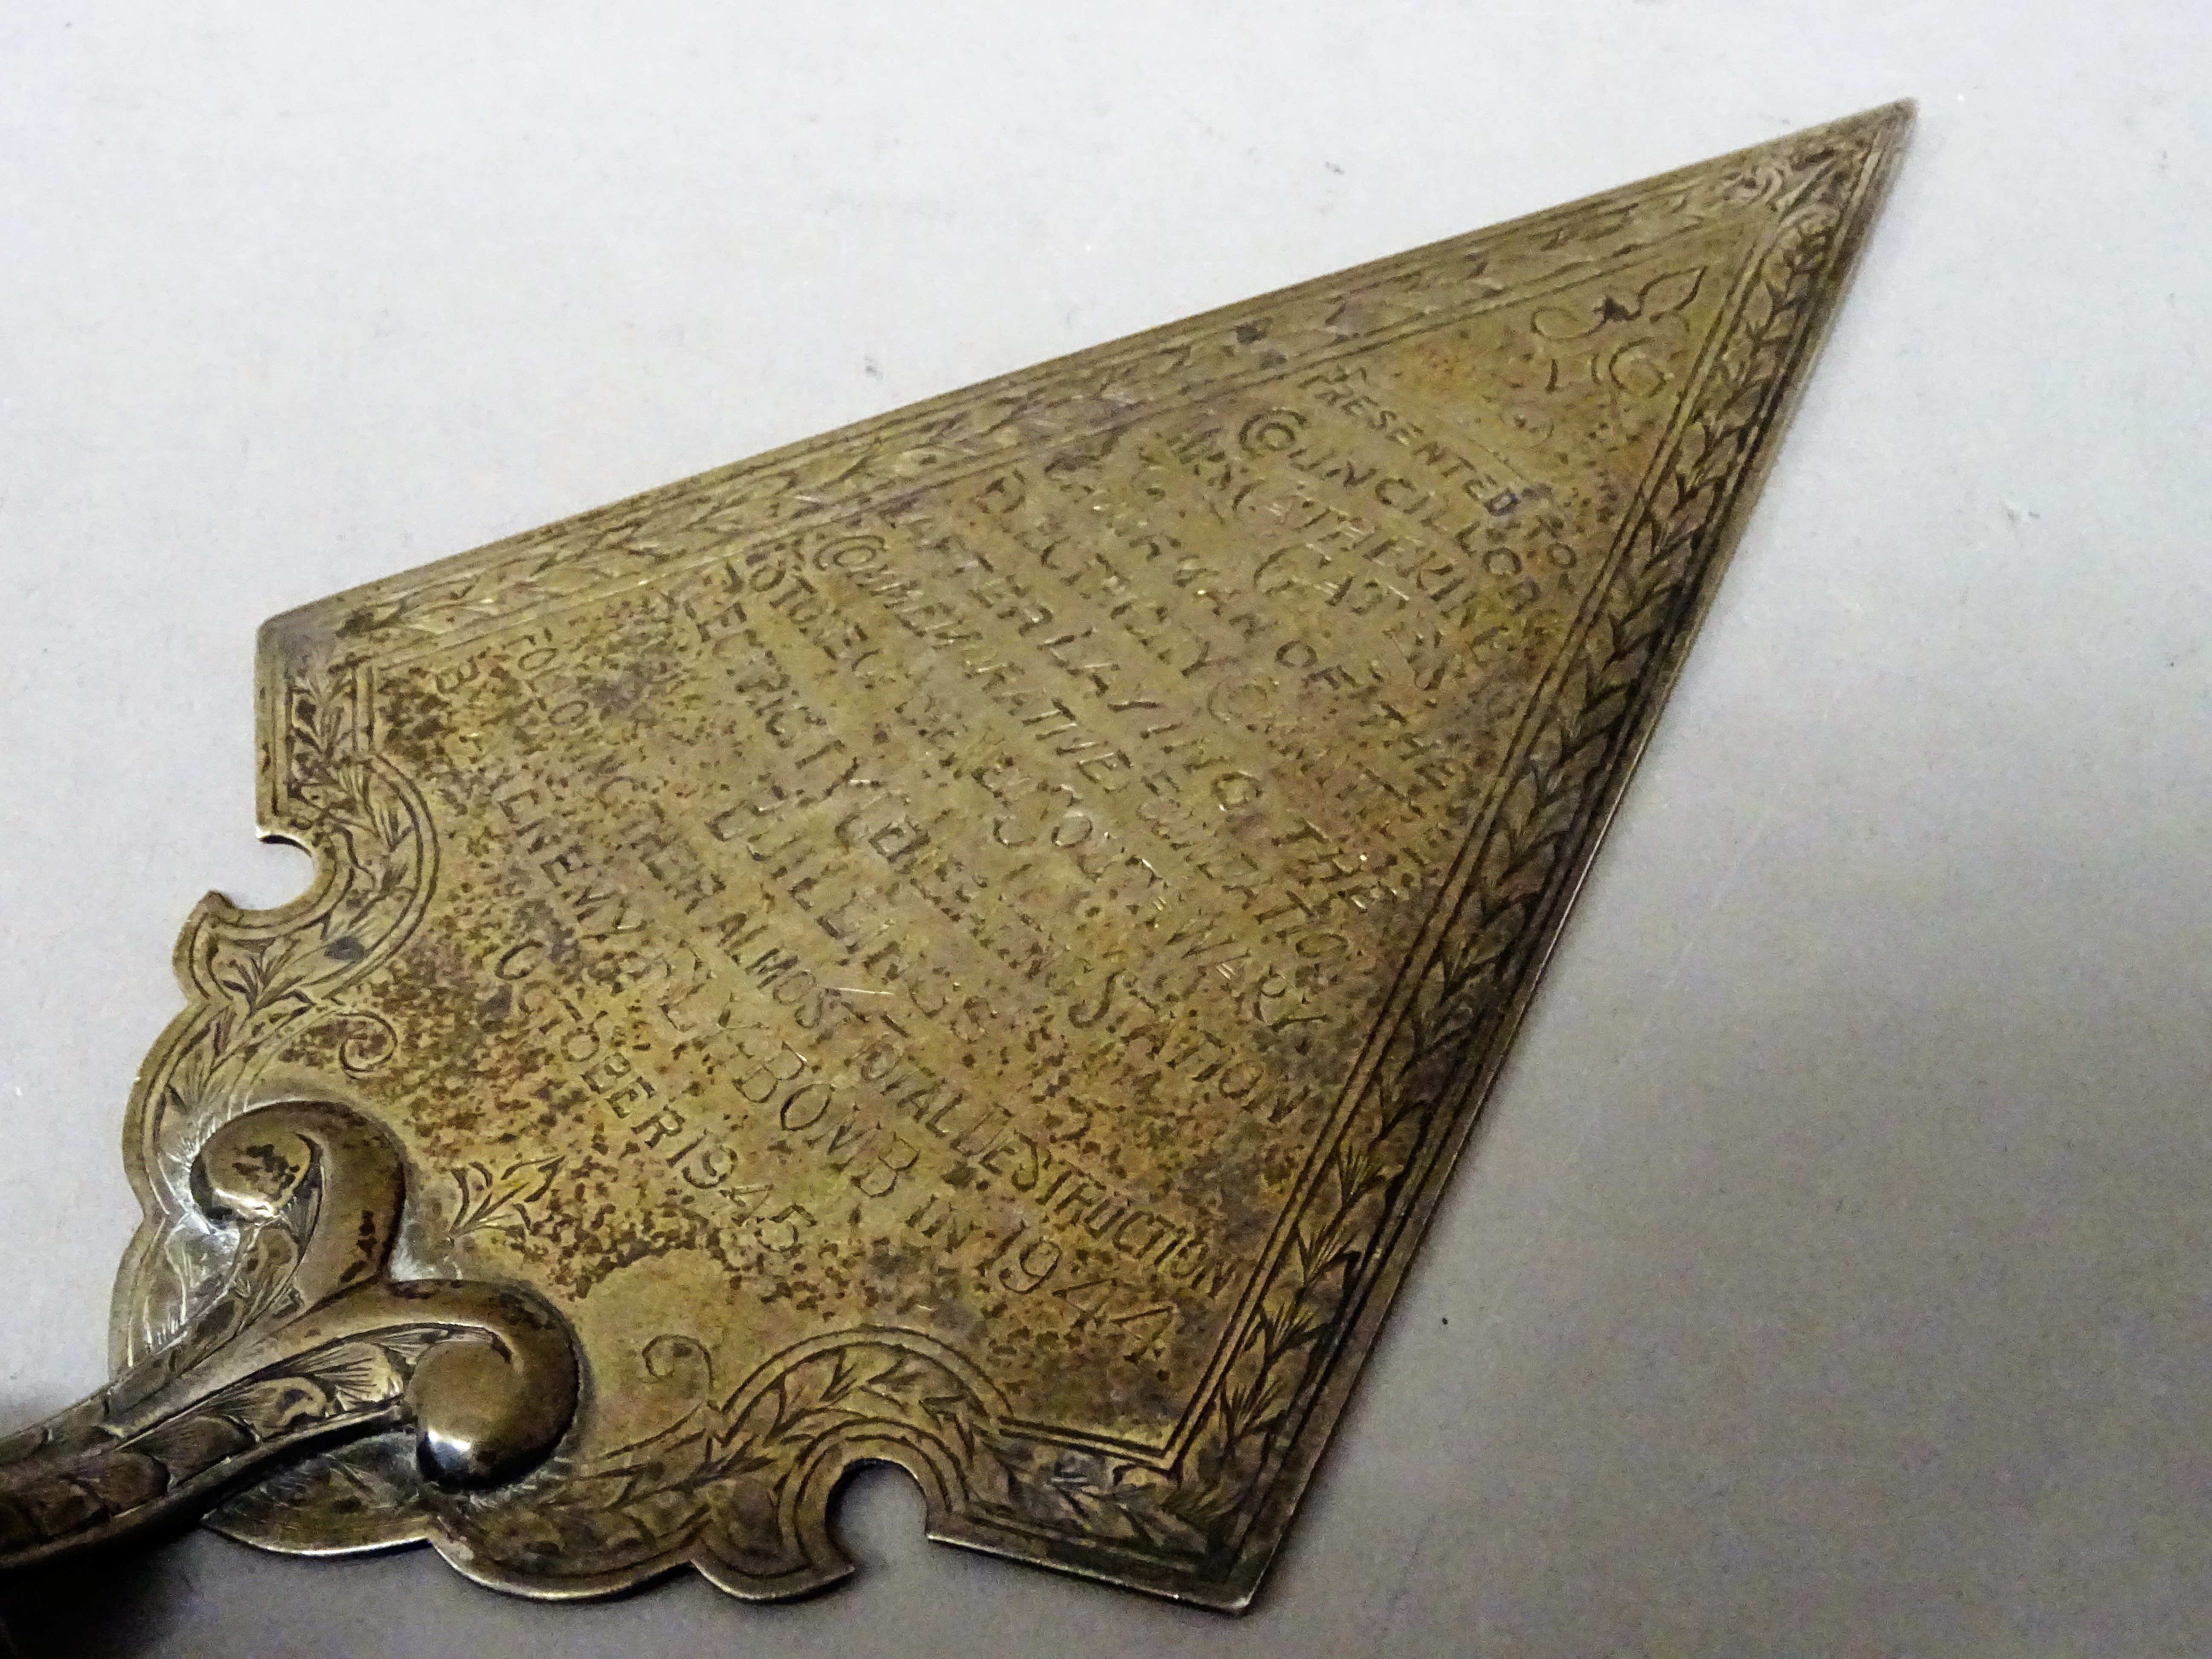 PRESENTED TO
COUNCILLOR
MRS CATHERINE
GATES
CHAIRMAN OF THE
ELECTRICITY COMMITTEE
AFTER LAYING THE
COMMEMORATIVE FOUNDATION
STONE OF THE SOUTHWARK
ELECTRICITY GENERATING STATION
BUILDINGS
FOLLOWING THEIR ALMOST TOTAL DESTRUCTION
BY ENEMY FLY-BOMB IN 1944
OCTOBER 1945